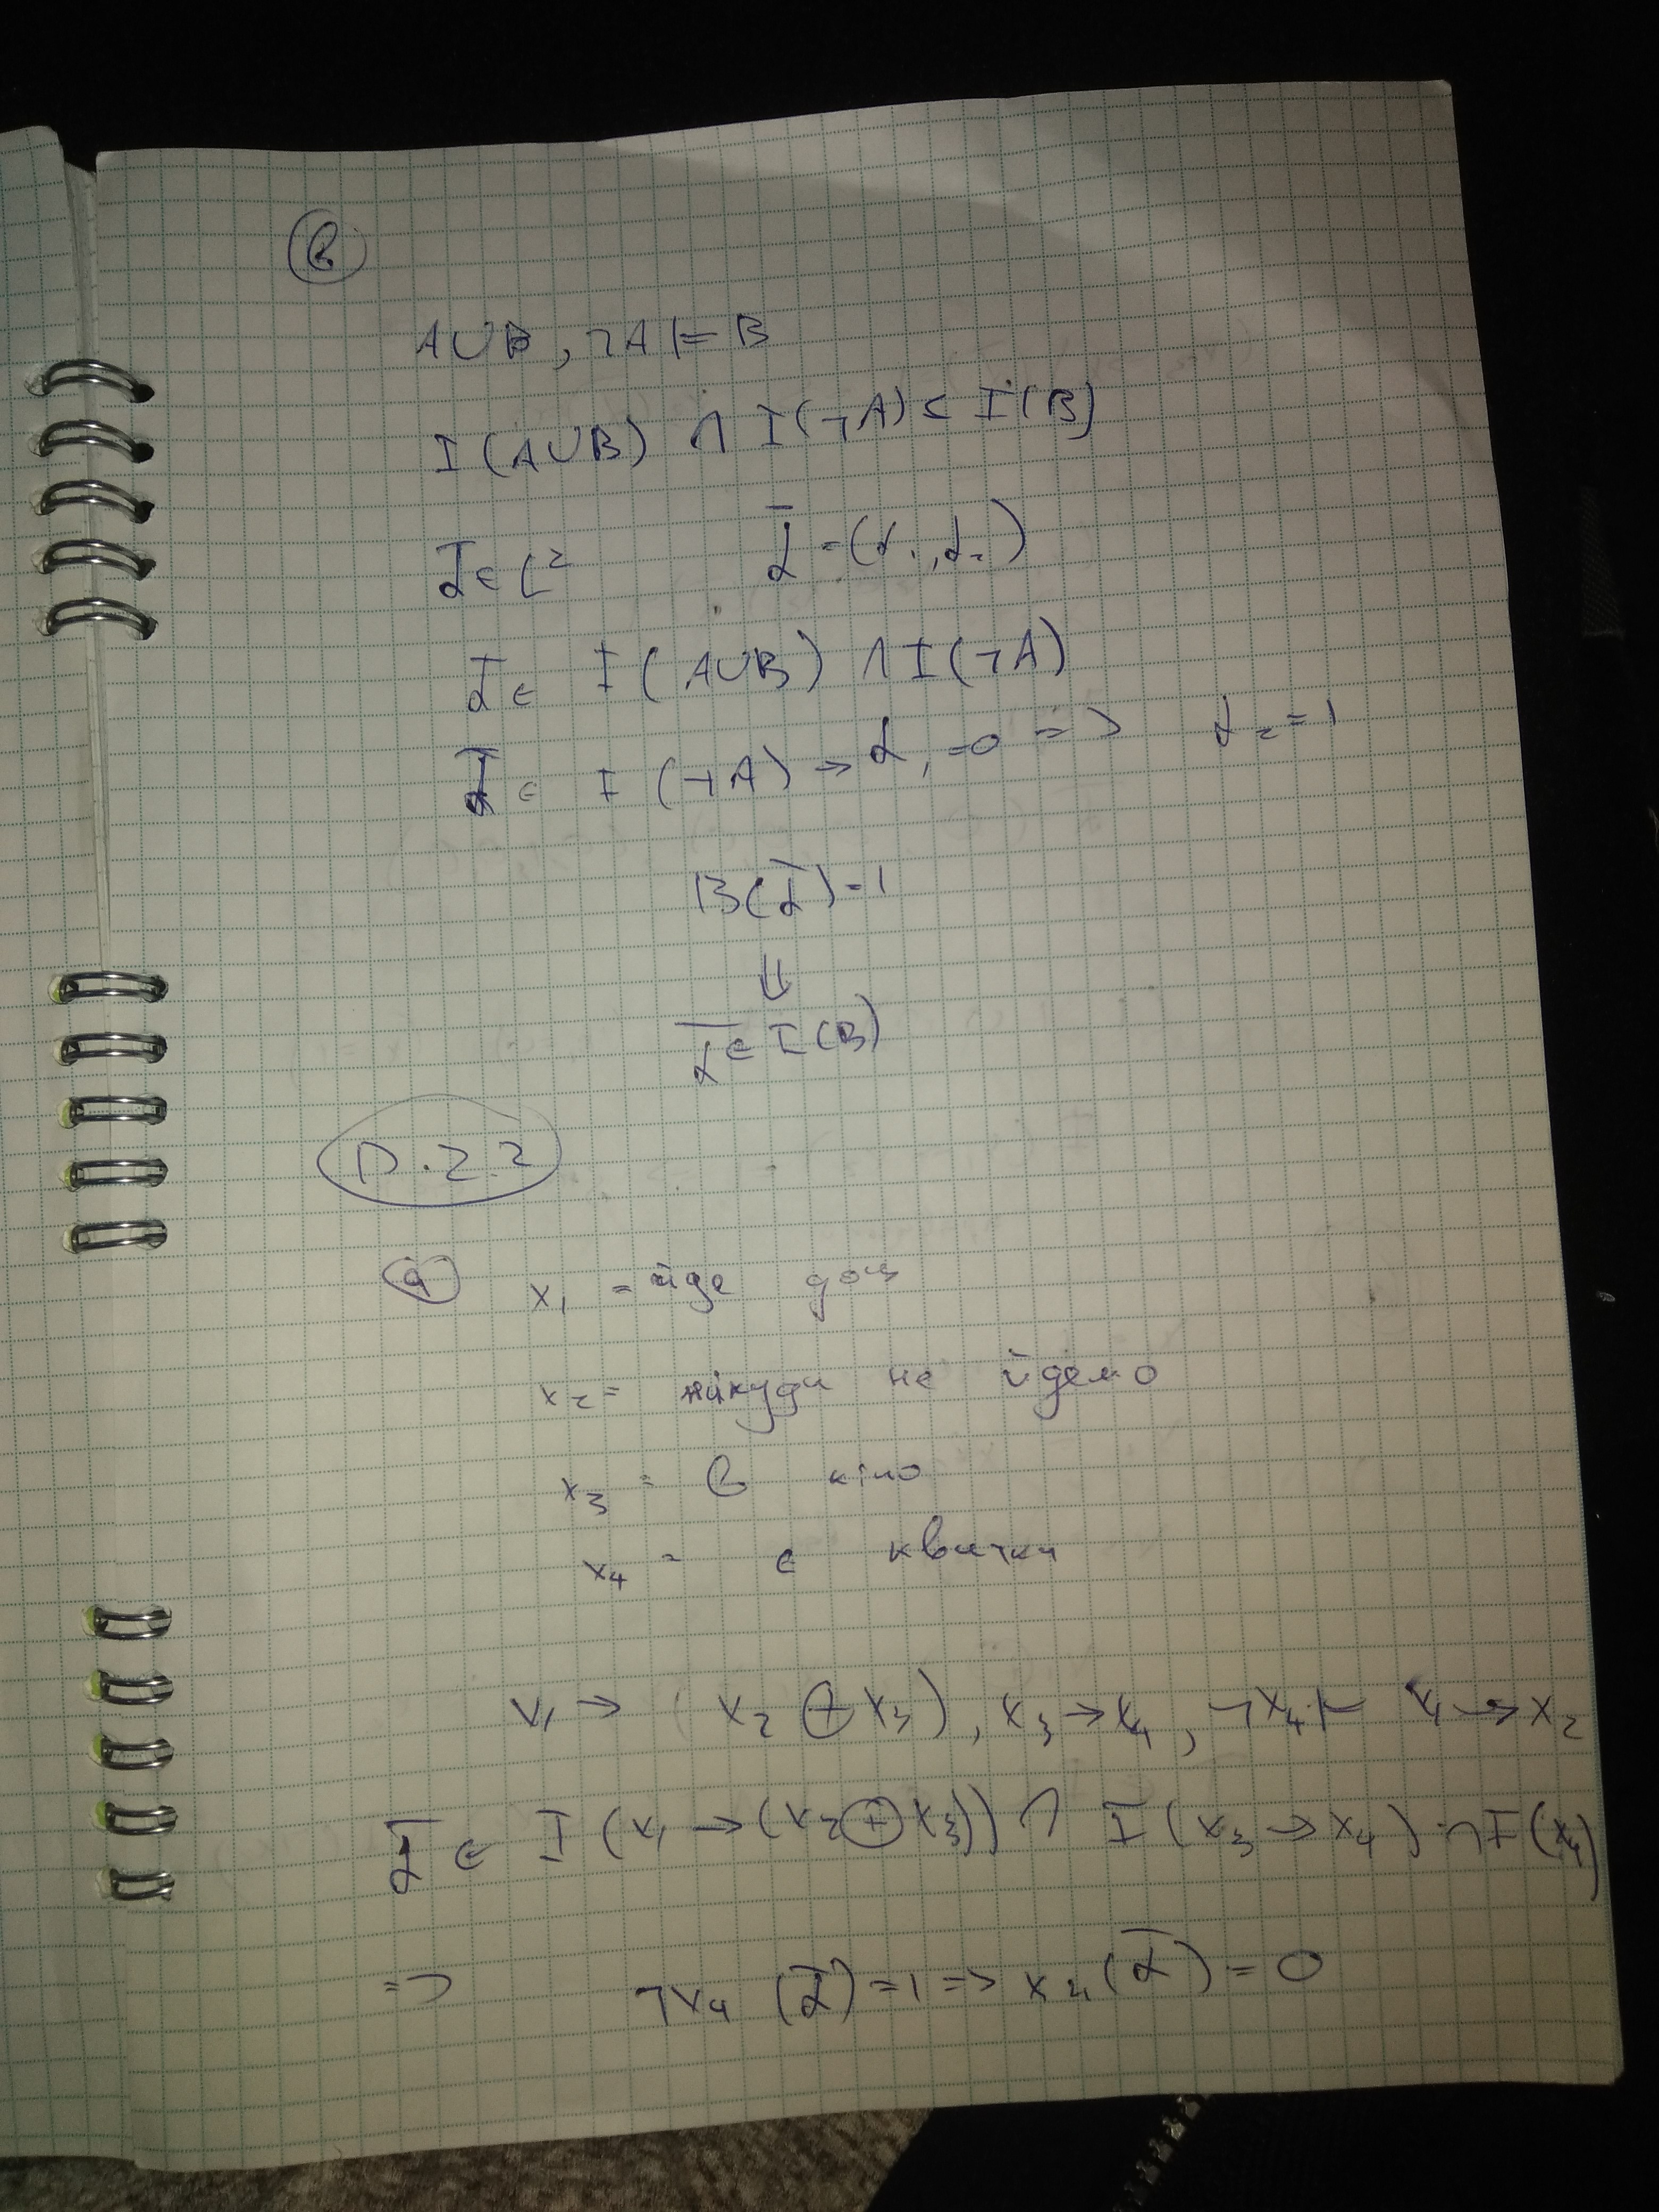 в
A∪B, ¬A ⊨ B
I(A∪B) ∩ I(¬A) ⊂ I(B)
ᾱ ∈ L² ᾱ = (α₁, α₂)
ᾱ ∈ I(A∪B) ∩ I(¬A)
ᾱ ∈ I(¬A) → α₁ = 0 => α₂ = 1
B(ᾱ) = 1
⇓
ᾱ ∈ I(B)
D.2.2
a x₁ = йде дощ
x₂ = нікуди не йдемо
x₃ = в кіно
x₄ = є квитки
x₁ → (x₂ ⊕ x₃), x₃ → x₄, ¬x₄ ⊢ x₁ → x₂
ᾱ ∈ I(x₁ → (x₂ ⊕ x₃)) ∩ I(x₃ → x₄) ∩ I(x₄)
=> ¬x₄(ᾱ) = 1 => x₄(ᾱ) = 0